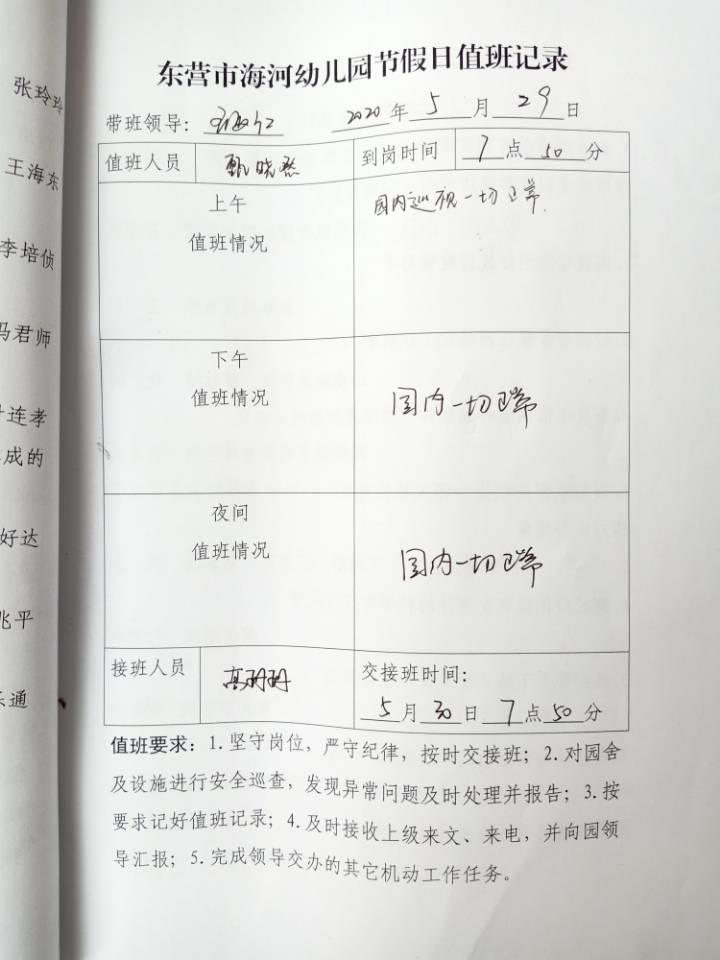 张玲玲
王海东
李培侦
马君师
连孝
成的
好达
兆平
通
东营市海河幼儿园节假日值班记录
带班领导： 2020 年 5 月 29 日
值班人员 甄晓 到岗时间 7 点 50 分
上午
值班情况
园内巡视一切正常.
下午
值班情况
园内一切正常
夜间
值班情况
园内一切正常
接班人员 高丹丹 交接班时间：
5 月 30 日 7 点 50 分
值班要求：1.坚守岗位，严守纪律，按时交接班；2.对园舍
及设施进行安全巡查，发现异常问题及时处理并报告；3.按
要求记好值班记录；4.及时接收上级来文、来电，并向园领
导汇报；5.完成领导交办的其它机动工作任务。